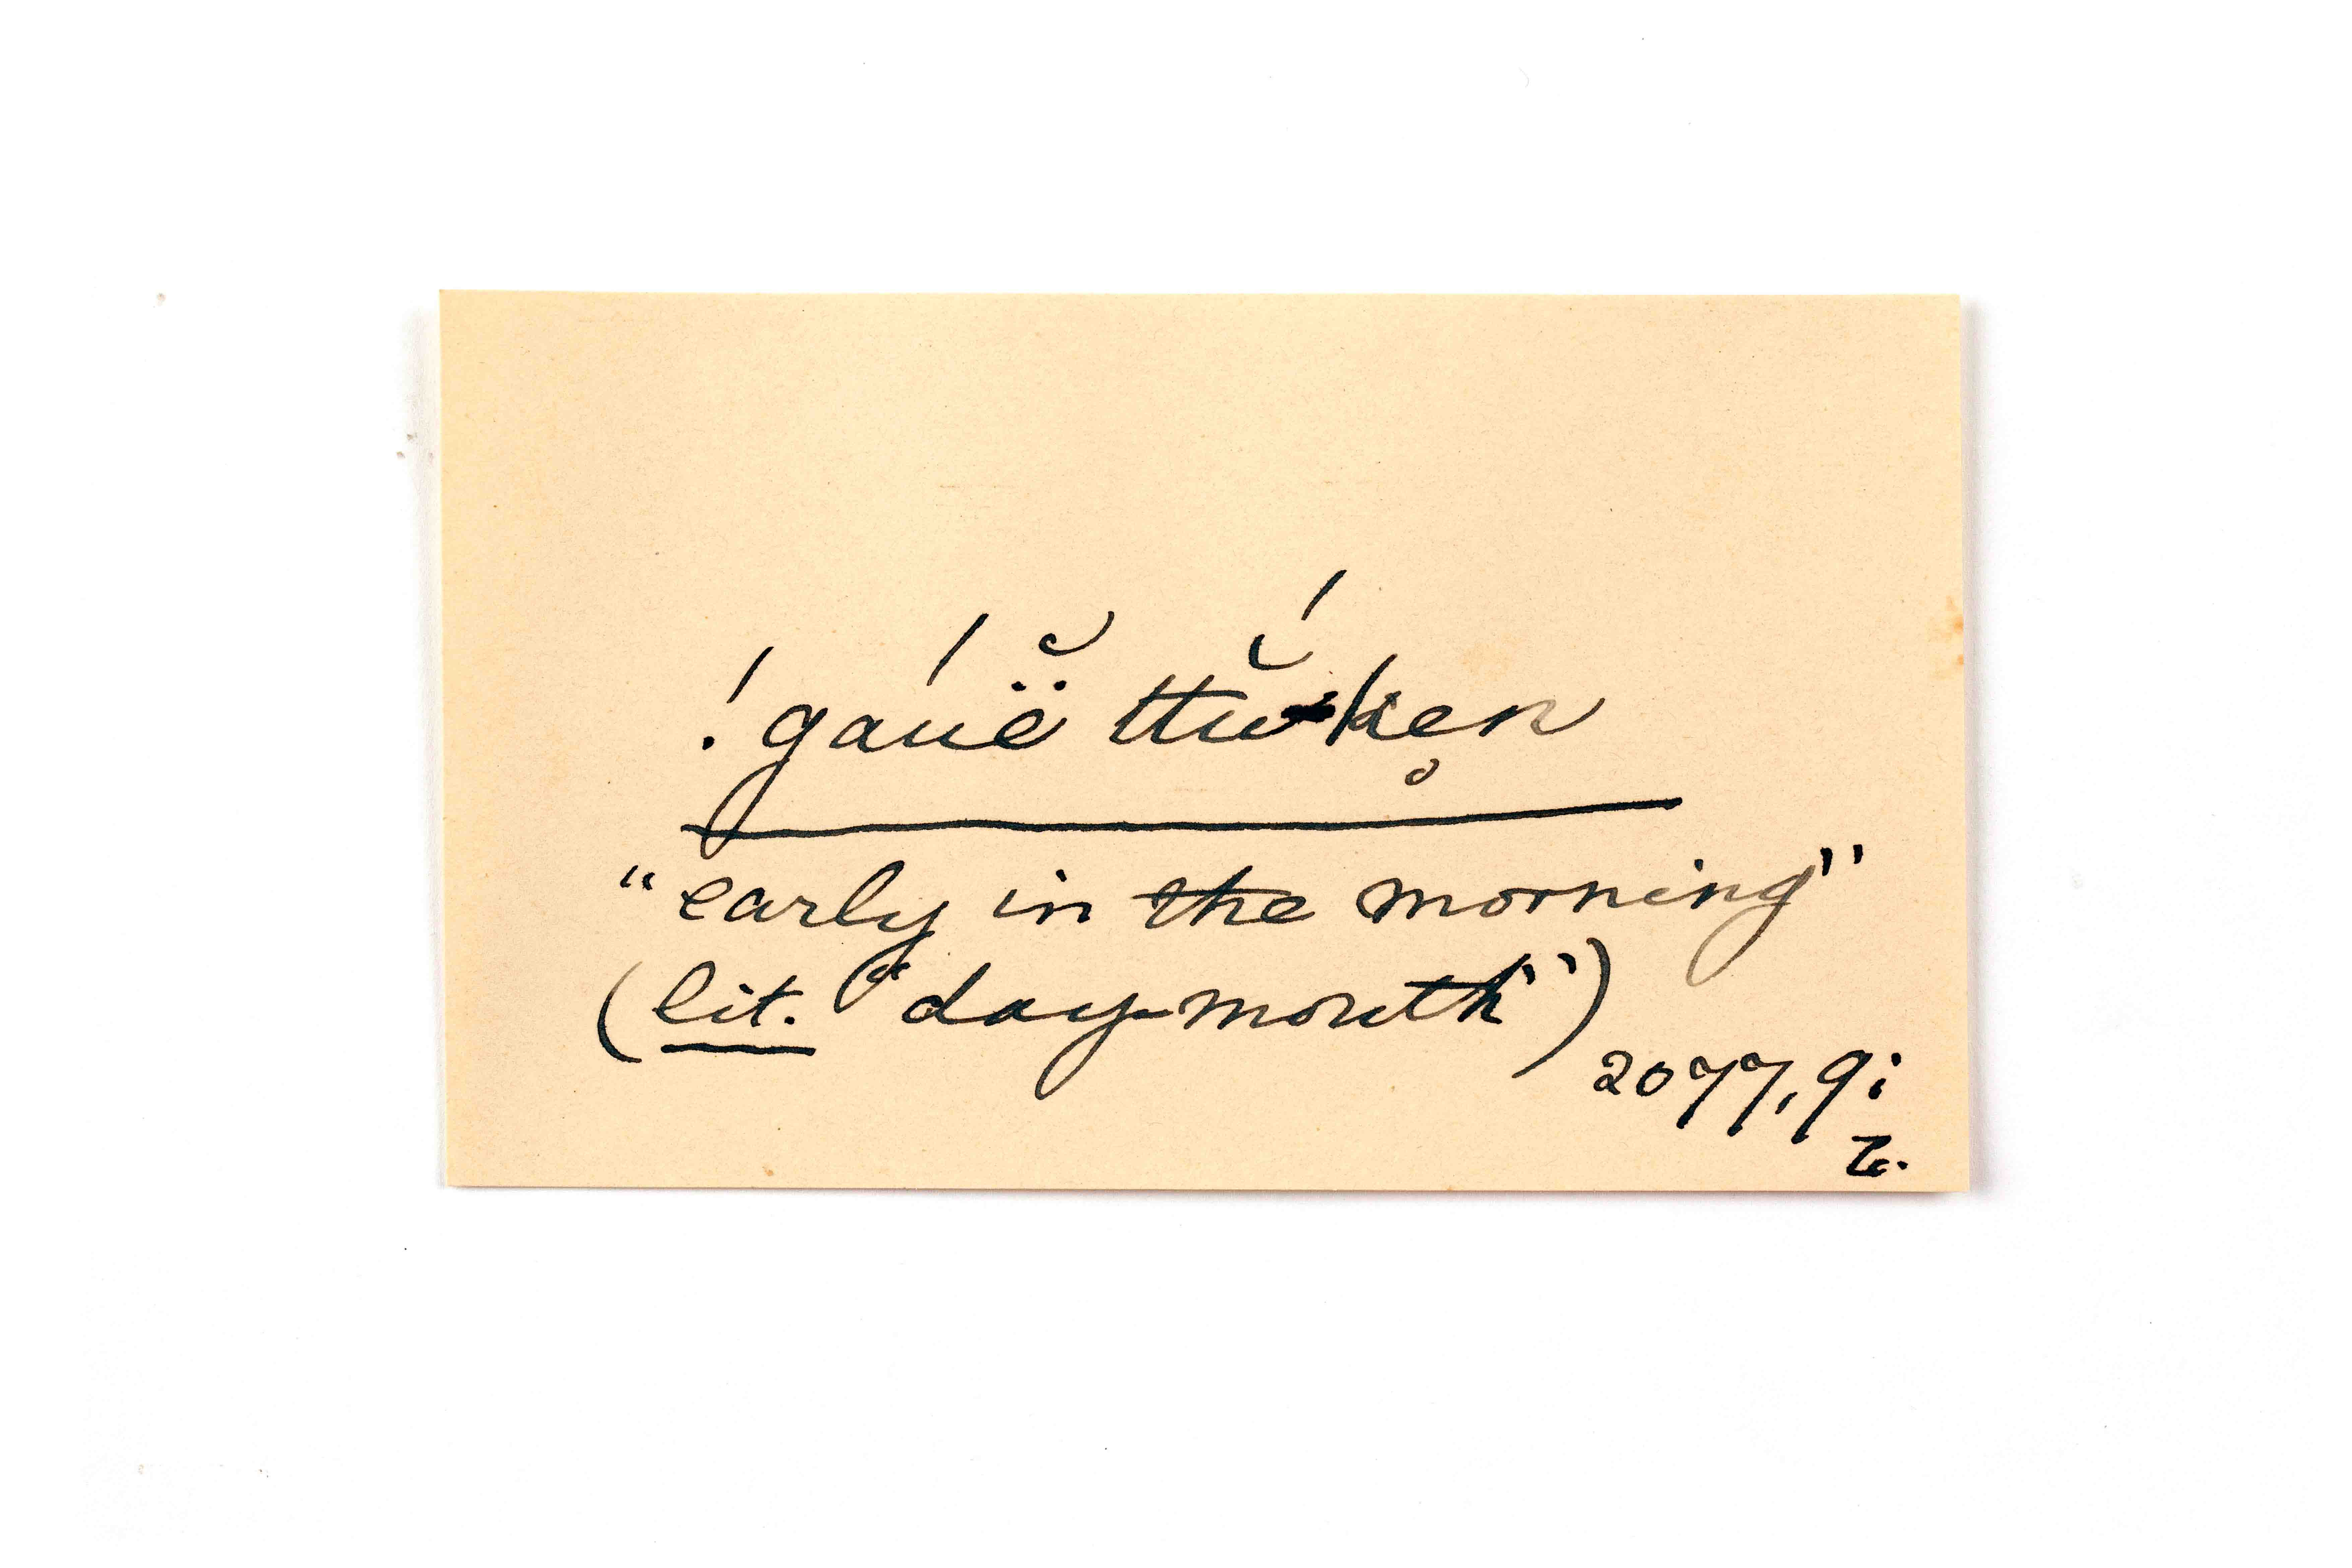 !gáuë̆ ttŭ́ḱen̥
"early in the morning"
(lit. "day-mouth")
2077, 9;